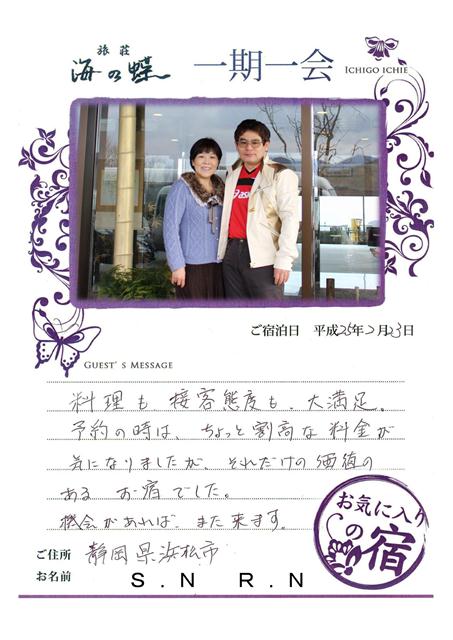 旅荘
海の蝶
一期一会
ICHIGO ICHIE
asics
ご宿泊日 平成25年2月23日
GUEST'S MESSAGE
料理も、接客態度も、大満足。
予約の時は、ちょっと割高な料金が
気になりましたが、それだけの価値の
ある お宿でした。
機会があれば、また来ます。
お気に入り
の宿
ご住所 静岡県浜松市
お名前 S.N R.N